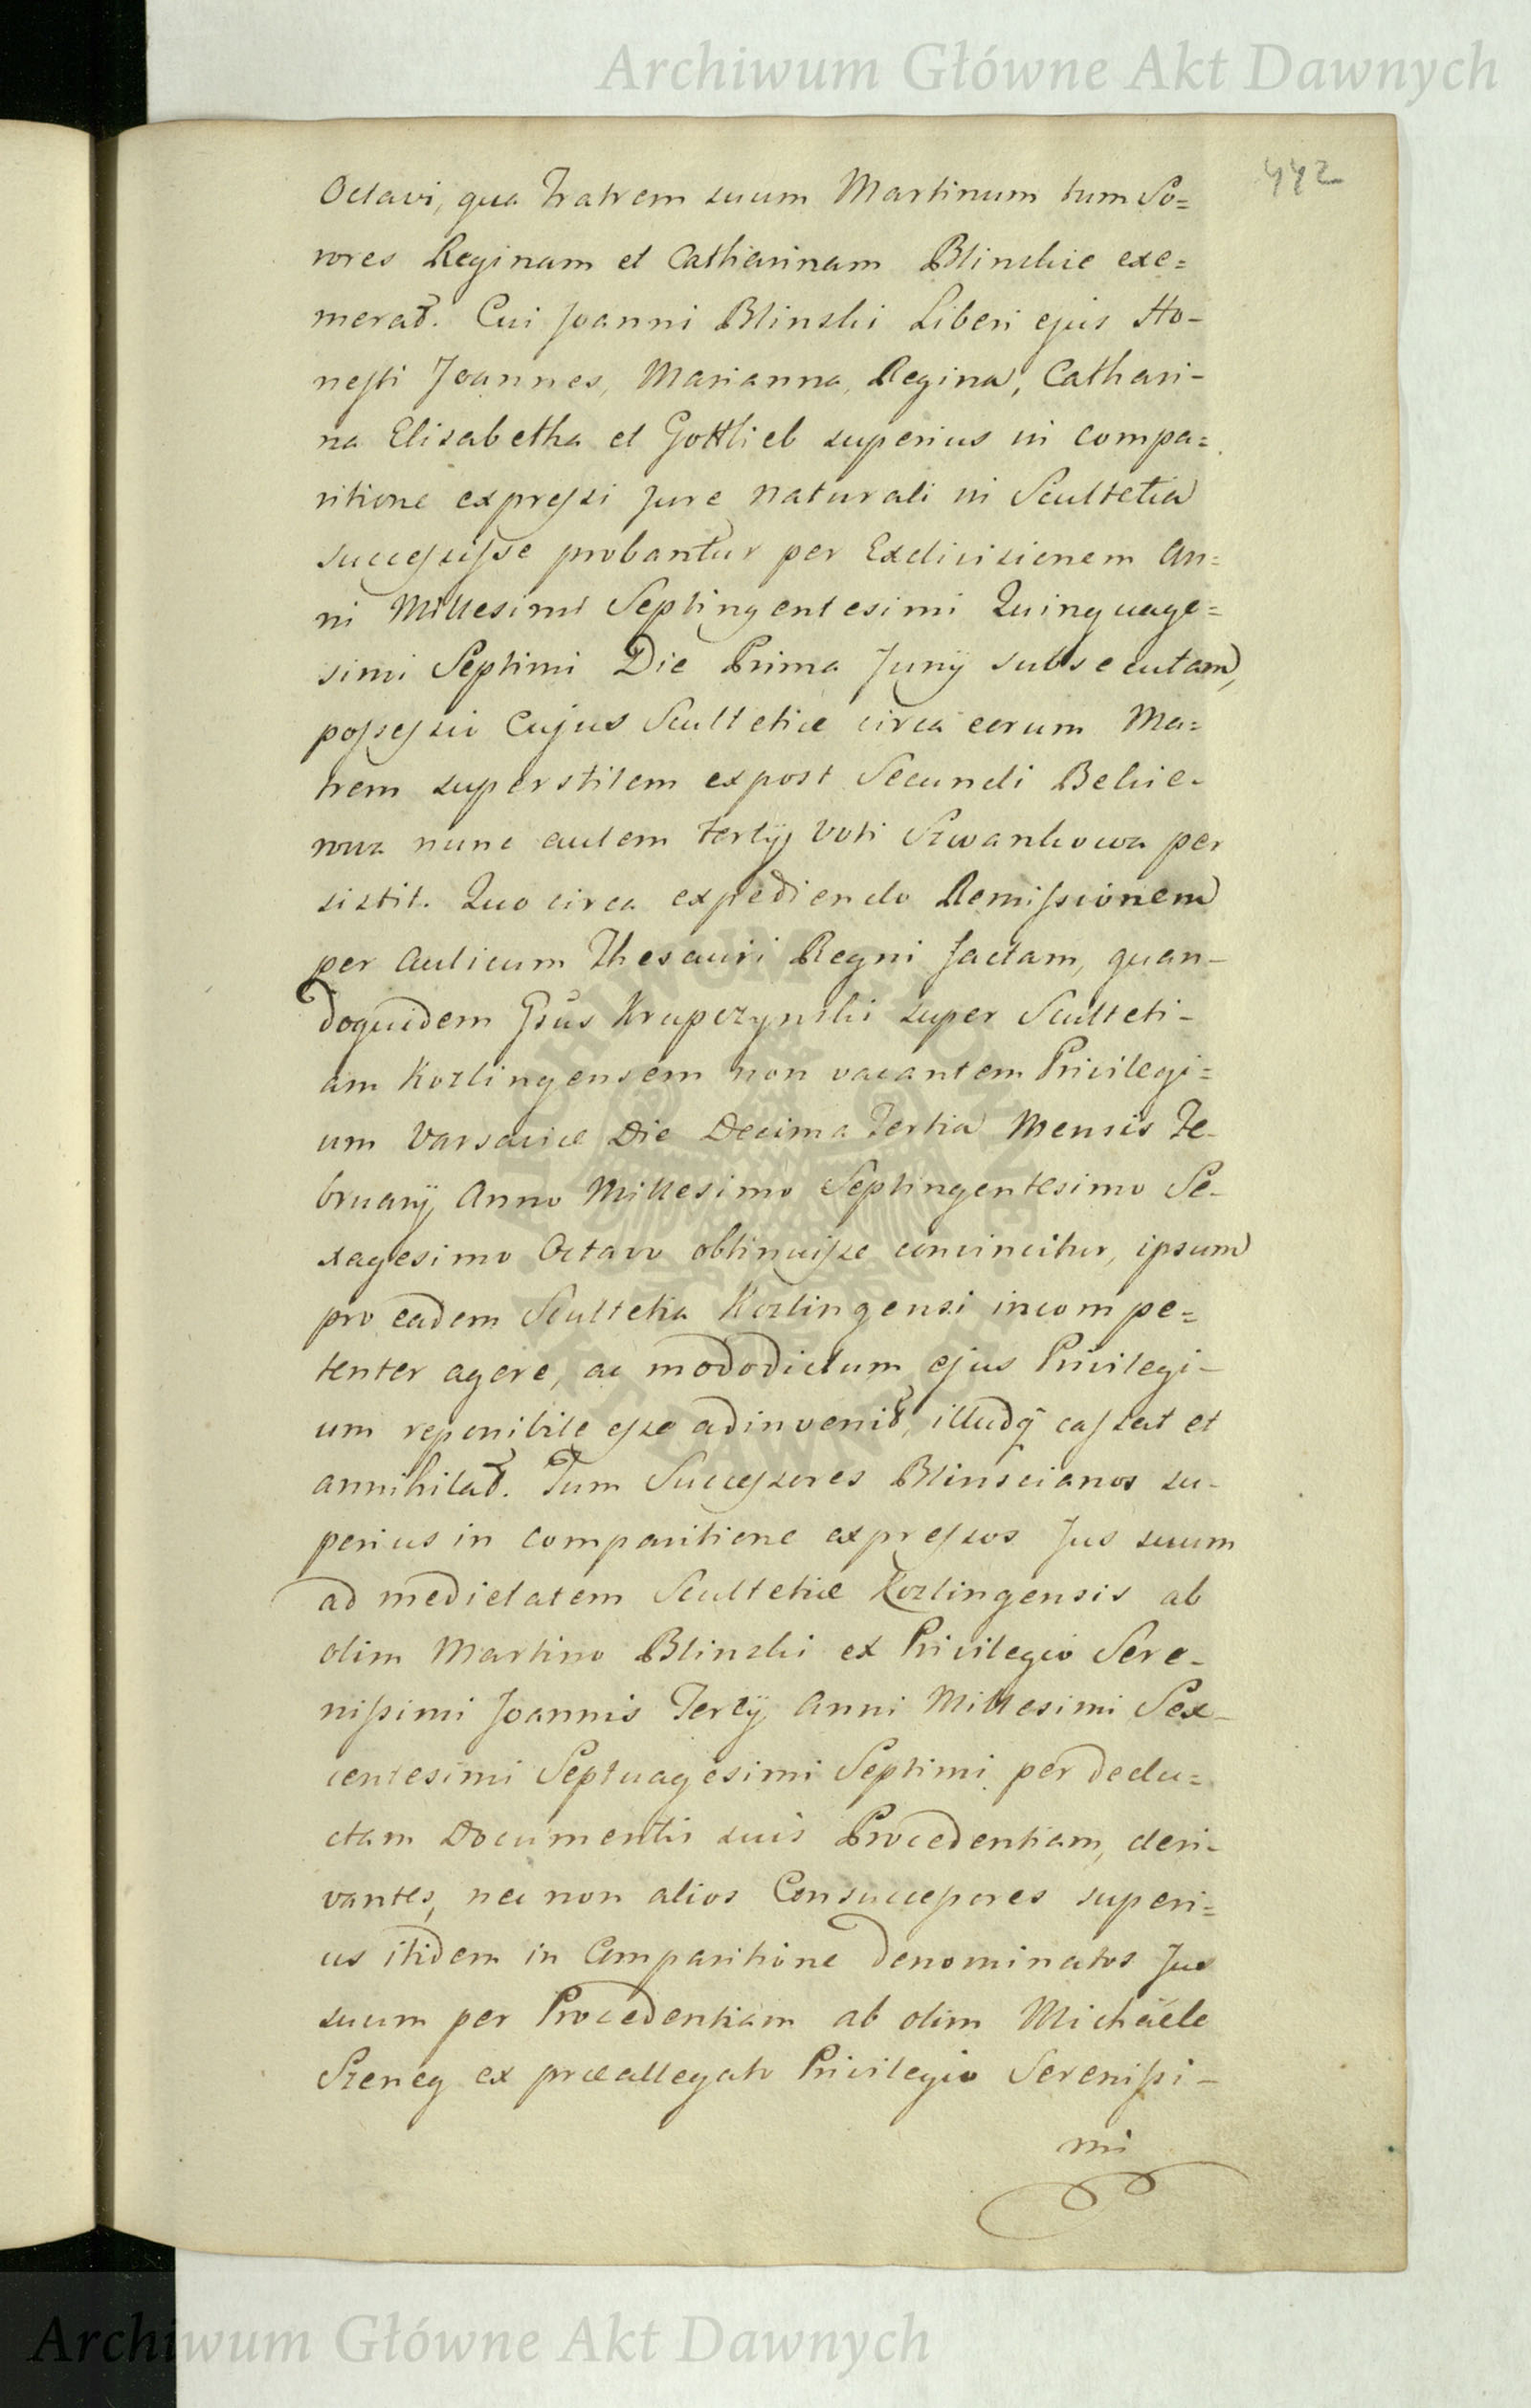 Archiwum Główne Akt Dawnych
442
Octavi, qua Fratrem suum Martinum tum So=
rores Reginam et Catharinam Blinskie exe=
merat. Cui Joanni Blinski Liberi ejus Ho-
nesti Joannes, Marianna, Regina, Cathari-
na Elisabetha et Gottlieb superius in compa=
ritione expressi Jure naturali in Scultetia
successisse probantur per Exdivisionem An=
ni Millesimi Septingentesimi Quinquage=
simi Septimi Die Prima Junij subsecutam,
possessio cujus Scultetiæ circa eorum Ma=
trem superstitem expost Secundi Bekie-
nowa nunc autem tertij Voti Szwankowa per
sistit. Quo circa expediendo Remissionem
per Aulicum Thesauri Regni factam, quan-
doquidem Gsus Krupczynski super Sculteti-
am Kozlingensem non vacantem Privilegi=
um Varsaviæ Die Decima Tertia Mensis Fe-
bruarij Anno Millesimo Septingentesimo Se-
xagesimo Octavo obtinuisse convincitur, ipsum
pro eadem Scultetia Kozlingensi incompe=
tenter agere, ac mododictum ejus Privilegi-
um reponibile esse adinvenit, illudq cassat et
annihilat. Tum Successores Blinscianos su-
perius in comparitione expressos Jus suum
ad medietatem Scultetiæ Kozlingensis ab
olim Martino Blinski ex Privilegio Sere-
nissimi Joannis Tertij Anni Millesimi Sex-
centesimi Septuagesimi Septimi per dedu=
ctam Documentis suis Procedentiam, deri-
vantes, nec non alios Consuccessores superi=
us itidem in Comparitione denominatos Jus
suum per Procedentiam ab olim Michaele
Szeneg ex præallegato Privilegio Serenissi-
mi
ARCHIWUM GŁÓWNE AKT DAWNYCH
Archiwum Główne Akt Dawnych